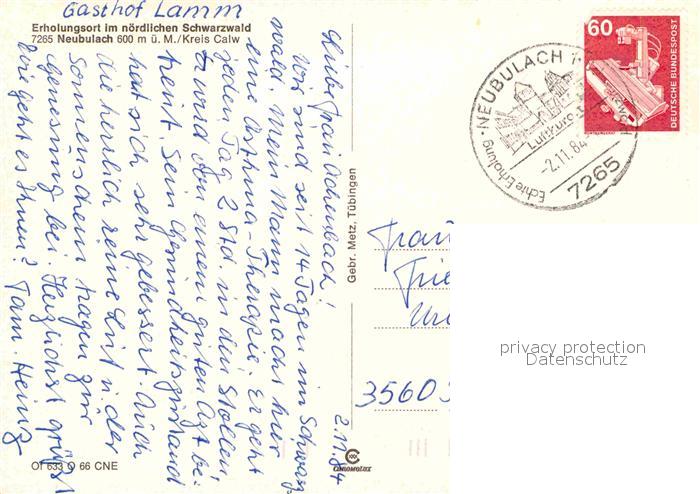 Gasthof Lamm
Erholungsort im nördlichen Schwarzwald
7265 Neubulach 600 m ü. M./Kreis Calw
2.11.84
Liebe Frau Achenbach!
Wir sind seit 14 Tagen im Schwarz
wald. Mein Mann macht hier
eine Asthma-Therapie. Er geht
jeden Tag 2 Std. in den Stollen
u. wird von einem guten Arzt be-
treut. Sein Gesundheitszustand
hat sich sehr gebessert. Auch
die herrlich reine Luft u. der
Sonnenschein tragen zur
Genesung bei. Herzlichst grüßt
Wie geht es Ihnen? Fam. Heinz
Of 633 Q 66 CNE
Gebr. Metz, Tübingen
CHROMOLUX
Frau
Frie
3560
NEUBULACH 1
Luftkurort
Echte Erholung
-2.11.84
7265
60
DEUTSCHE BUNDESPOST
privacy protection
Datenschutz